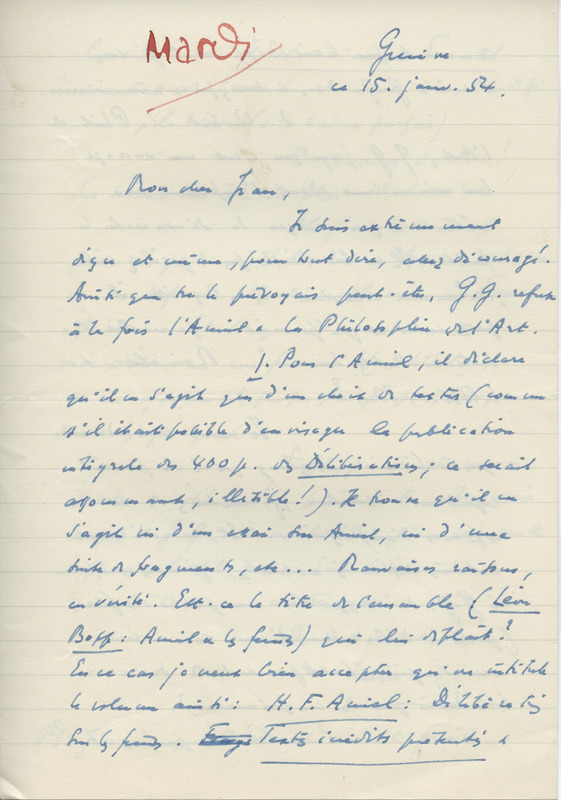 Mardi
Genève
ce 15. janv. 54.
Mon cher Jean,
Je suis extrêmement
déçu et même, pour tout dire, assez découragé.
Ainsi que tu le prévoyais peut-être, G.G. refuse
à la fois l'Amiel & la Philosophie de l'Art.
1. Pour l'Amiel, il déclare
qu'il ne s'agit que d'un choix de textes (comme
s'il était possible d'envisager la publication
intégrale des 400 p. des Délibérations; ce serait
assommant, illisible!). Il trouve qu'il ne
s'agit ni d'un essai sur Amiel, ni d'une
suite de fragments, etc... Mauvaises raisons,
en vérité. Est-ce le titre de l'ensemble (Léon
Bopp: Amiel & les femmes) qui lui déplaît?
En ce cas je veux bien accepter qu'on intitule
le volume ainsi: H.F. Amiel: Délibérations
sur les femmes. Textes inédits présentés &